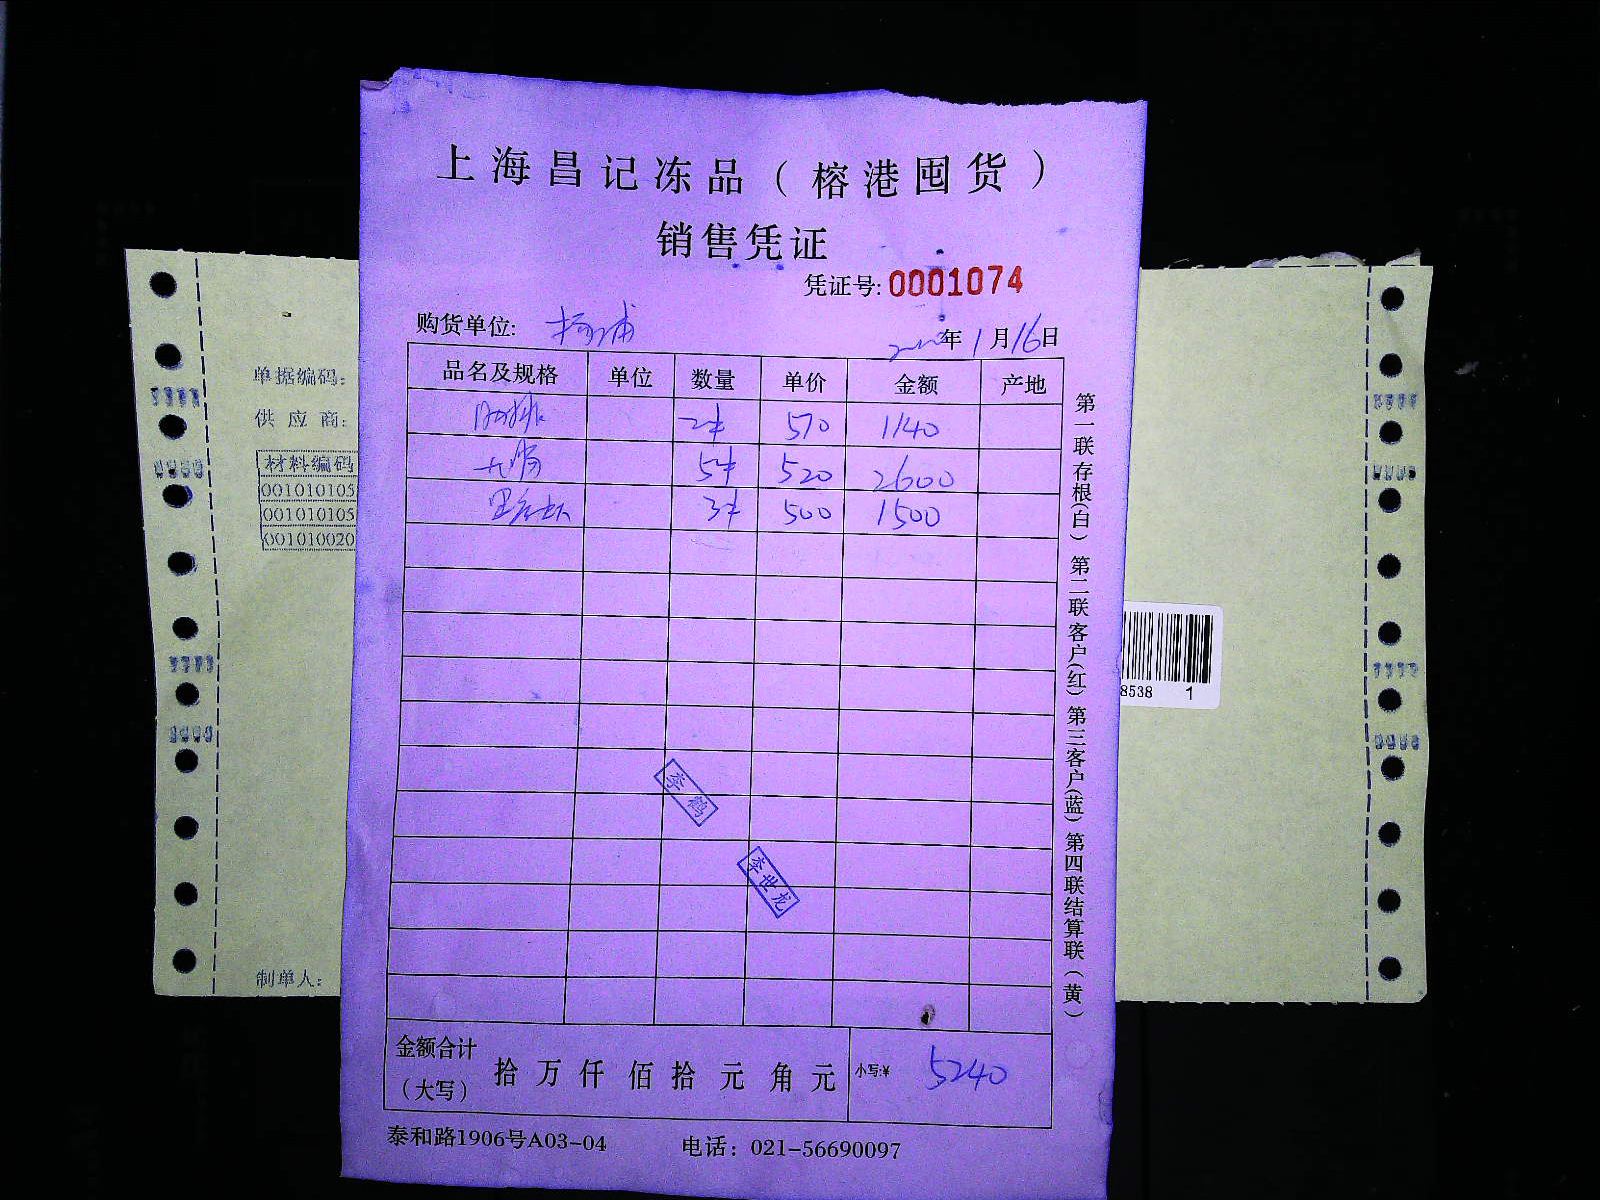 上海昌记冻品（榕港囤货）
销售凭证
凭证号: 0001074
购货单位: 杨浦
年1月16日
品名及规格 单位 数量 单价 金额 产地
2件 570 1140
5件 520 2600
3件 500 1500
李鹤
李世龙
金额合计（大写） 拾 万 仟 佰 拾 元 角 元 小写:¥ 5240
泰和路1906号A03-04 电话：021-56690097
第一联存根(白) 第二联客户(红) 第三客户(蓝) 第四联结算联(黄)
单据编码:
供应商:
材料编码
001010105
001010105
001010020
制单人:
8538 1